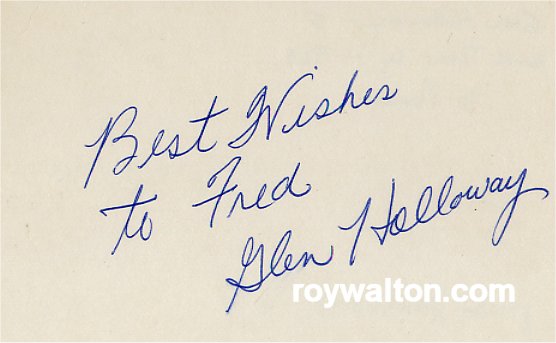 Best Wishes
to Fred
Glen Holloway
roywalton.com